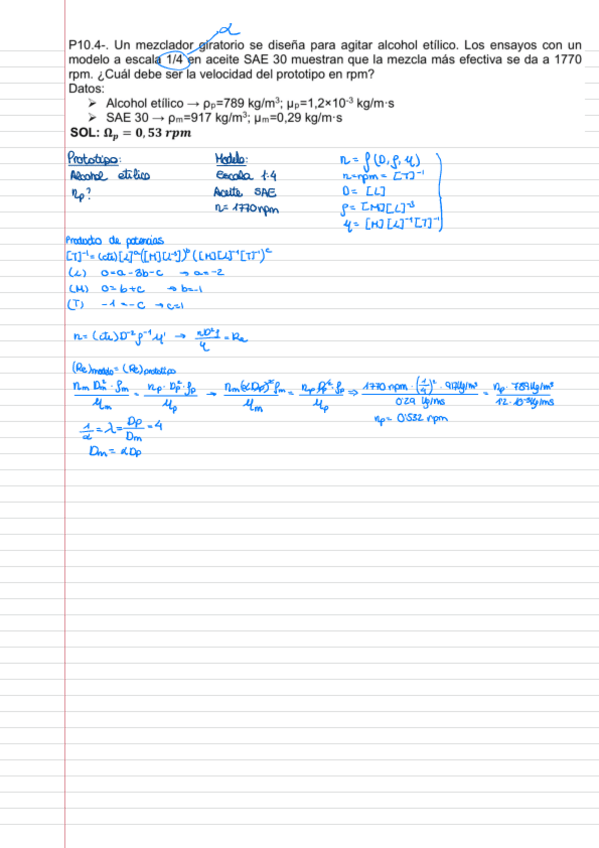 α
P10.4-. Un mezclador giratorio se diseña para agitar alcohol etílico. Los ensayos con un
modelo a escala 1/4 en aceite SAE 30 muestran que la mezcla más efectiva se da a 1770
rpm. ¿Cuál debe ser la velocidad del prototipo en rpm?
Datos:
➤ Alcohol etílico → ρp=789 kg/m³; μp=1,2×10⁻³ kg/m·s
➤ SAE 30 → ρm=917 kg/m³; μm=0,29 kg/m·s
SOL: Ωp = 0,53 rpm
Prototipo:
Alcohol etílico
np?
Modelo:
Escala 1:4
Aceite SAE
n=1770rpm
n = f(D, ρ, μ)
n=rpm = [T]⁻¹
D = [L]
ρ= [M][L]⁻³
μ= [M][L]⁻¹[T]⁻¹
Producto de potencias
[T]⁻¹=(cte)[L]ᵃ([M][L⁻³])ᵇ([M][L]⁻¹[T]⁻¹)ᶜ
(L) 0=a-3b-c → a=-2
(M) 0=b+c → b=-1
(T) -1=-c → c=1
n=(cte)D⁻²ρ⁻¹μ¹ → nD²ρ/μ = Re
(Re)modelo=(Re)prototipo
nm Dm²·ρm/μm = np·Dp²·ρp/μp → nm(αDp)²ρm/μm = np Dp²·ρp/μp ⇒ 1770 rpm·(1/4)²·917kg/m³/0'29 kg/ms = np·789kg/m³/1'2·10⁻³kg/ms
1/α=λ=Dp/Dm=4
np= 0'532 rpm
Dm=αDp